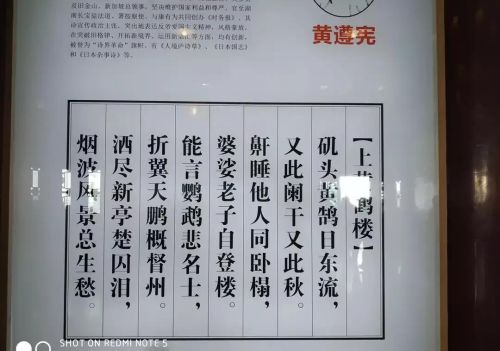 旧金山、新加坡总领事，坚决维护国家利益和尊严，官至湖
南长宝盐法道、署按察使，与康有为共同创办《时务报》，其
诗宣传政治主张，突出地表达反帝爱国主义精神，风格豪放，
在突破旧格律、开拓新境界、运用新词汇等方面，均有创新，
被誉为“诗界革命”旗帜，有《人境庐诗草》、《日本国志》
和《日本杂事诗》等。
黄遵宪
【上黄鹤楼】
矶头黄鹄日东流，
又此阑干又此秋。
鼾睡他人同卧榻，
婆娑老子自登楼。
能言鹦鹉悲名士，
折翼天鹏概督州。
洒尽新亭楚囚泪，
烟波风景总生愁。
SHOT ON REDMI NOTE 5